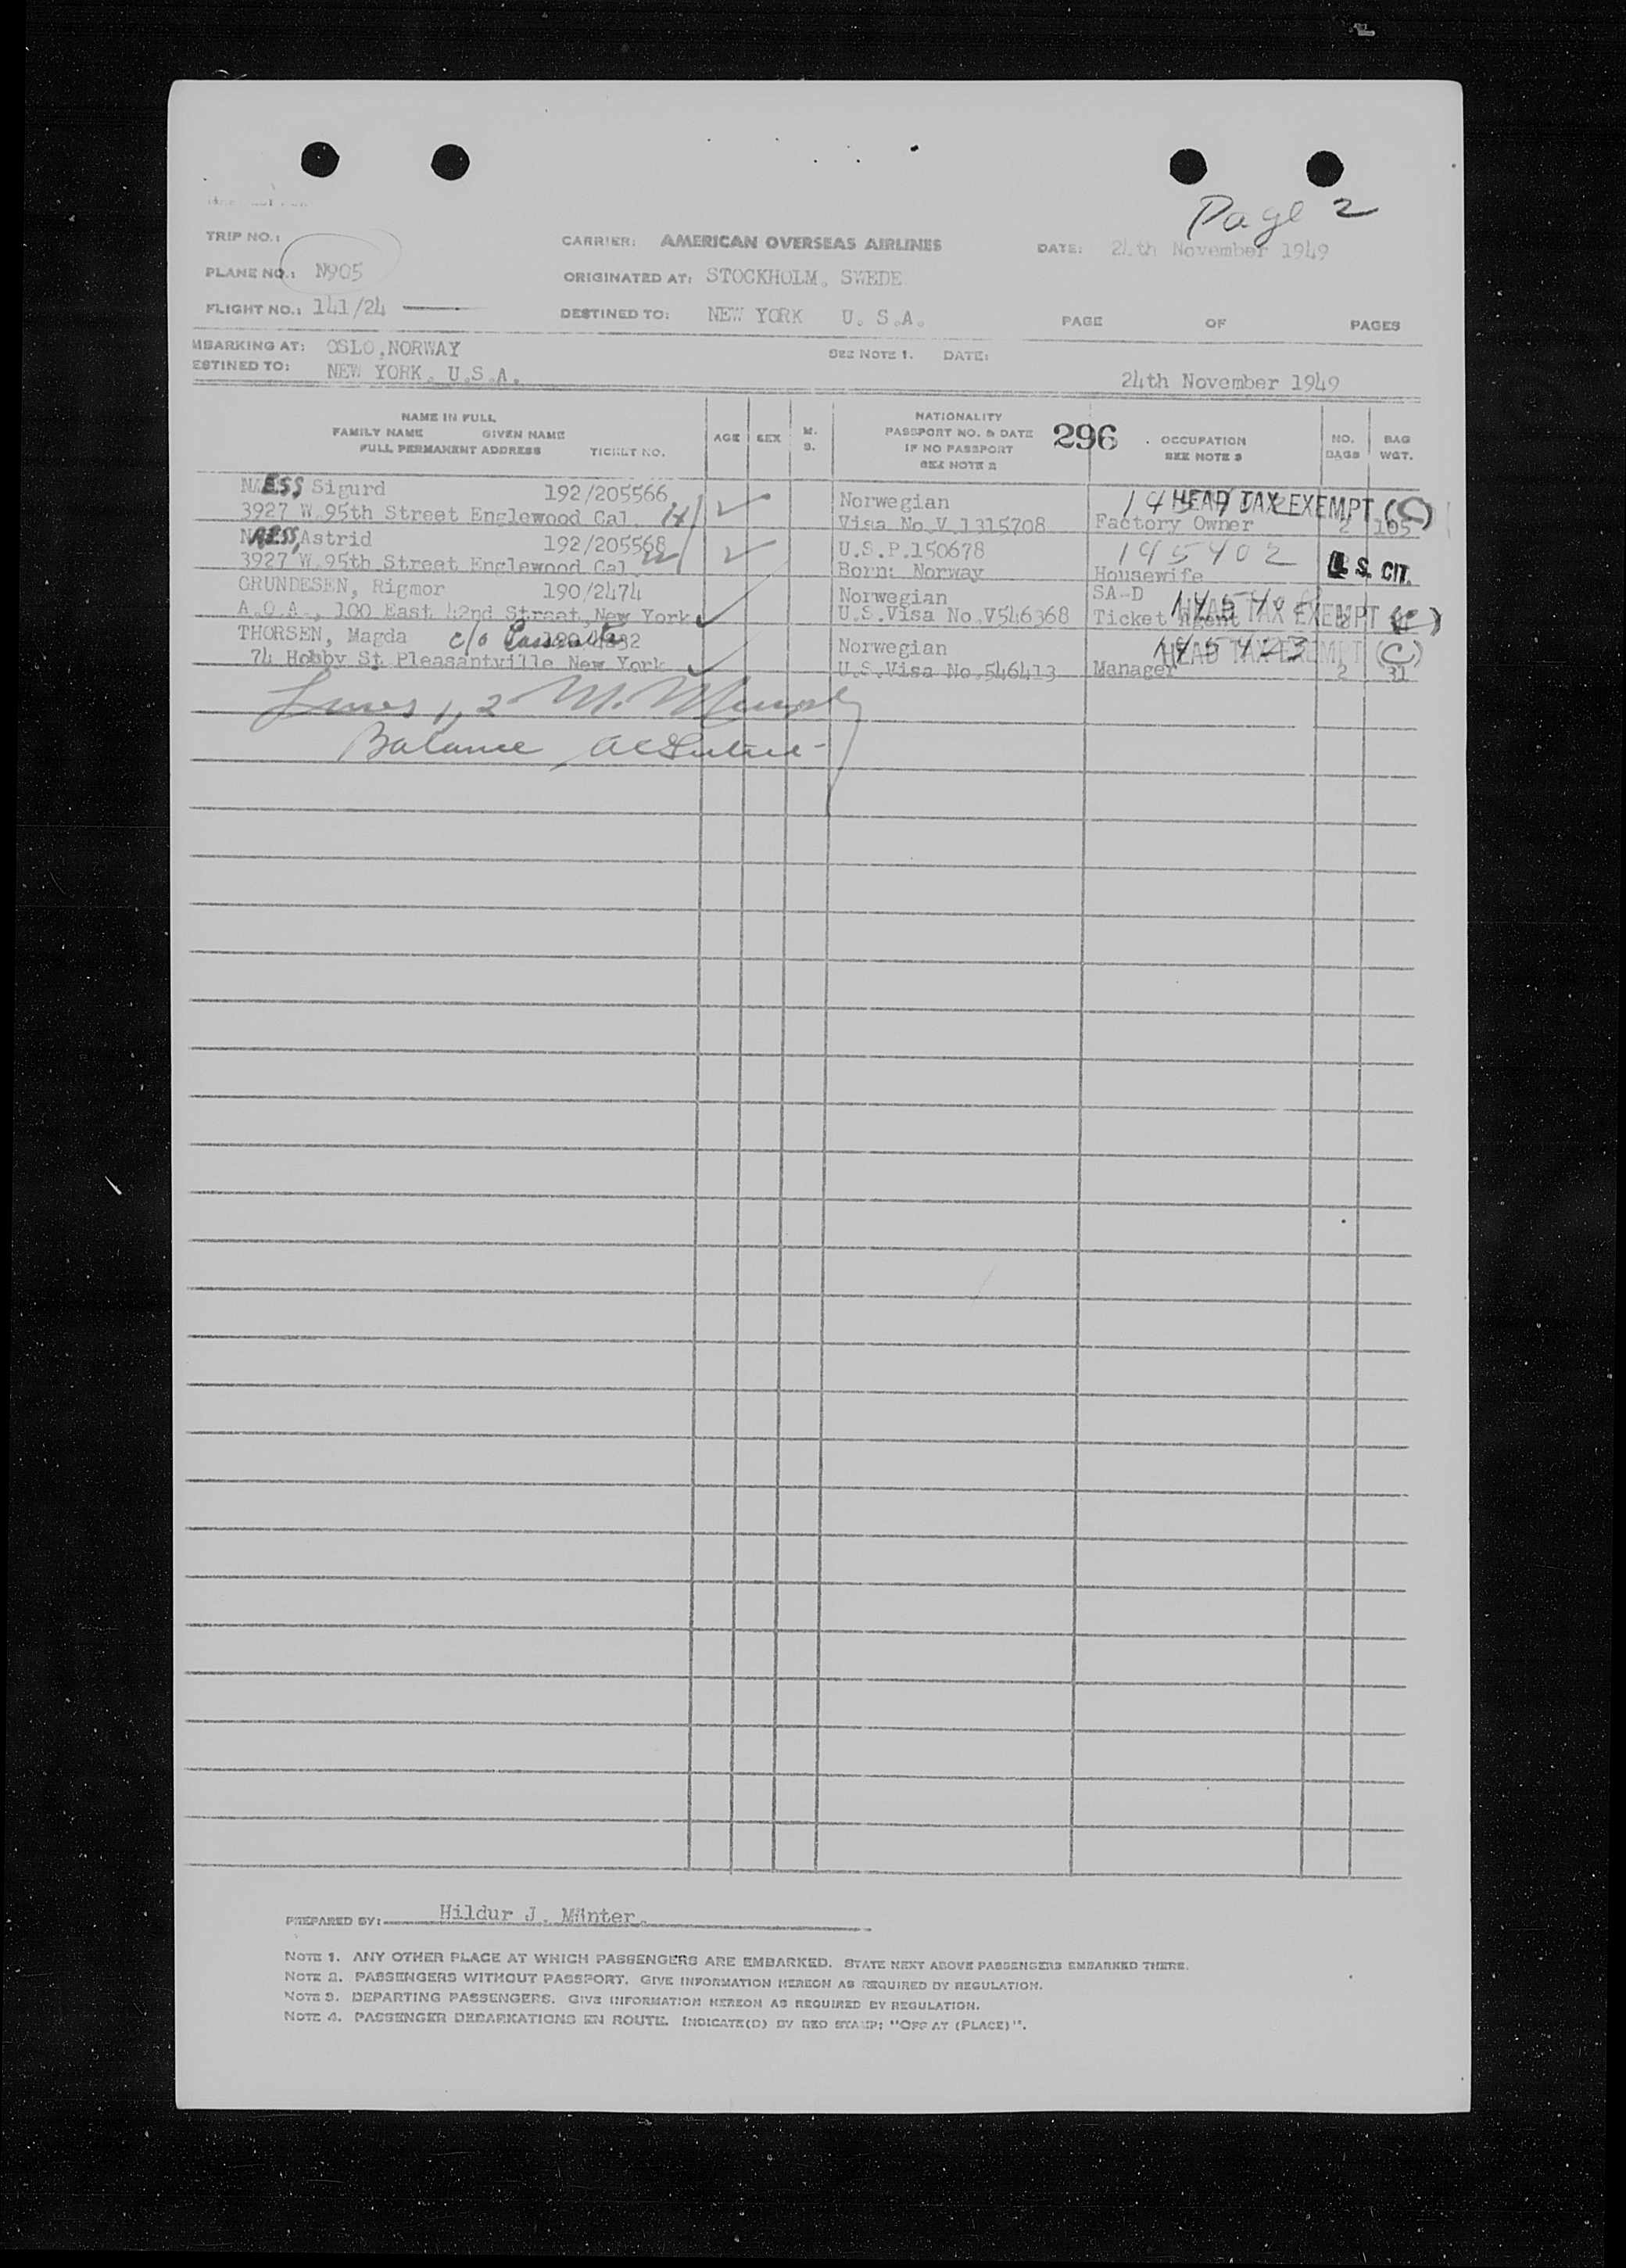 Page 2
TRIP NO.:
CARRIER: AMERICAN OVERSEAS AIRLINES
DATE: 24th November 1949
PLANE NO.: N905
ORIGINATED AT: STOCKHOLM, SWEDE
FLIGHT NO.: 141/24
DESTINED TO: NEW YORK U.S.A.
PAGE OF PAGES
MBARKING AT: OSLO,NORWAY
SEE NOTE 1. DATE:
ESTINED TO: NEW YORK. U.S.A.
24th November 1949
NAME IN FULL
FAMILY NAME GIVEN NAME
FULL PERMANENT ADDRESS TICKET NO.
AGE SEX M. S.
NATIONALITY
PASSPORT NO. & DATE
IF NO PASSPORT
SEE NOTE 2
296
OCCUPATION
SEE NOTE 3
NO. BAGS
BAG WGT.
NAESS, Sigurd 192/205566 Norwegian HEAD TAX EXEMPT (C)
3927 W.95th Street Englewood Cal. Visa No.V.1315708 Factory Owner 2 105
NAESS, Astrid 192/205568 U.S.P.150678 195402 U.S. CIT.
3927 W.95th Street Englewood Cal. Born: Norway Housewife
GRUNDESEN, Rigmor 190/2474 Norwegian SA-D
A.O.A., 100 East 42nd Street, New York U.S.Visa No.V546368 Ticket Agent HEAD TAX EXEMPT (C)
THORSEN, Magda c/o Norwegian HEAD TAX EXEMPT (C)
74 Hobby St. Pleasantville New York U.S.Visa No.546413 Manager 2 31
Lines 1, 2 M. Murphy
Balance
PREPARED BY: Hildur J. Münter.
NOTE 1. ANY OTHER PLACE AT WHICH PASSENGERS ARE EMBARKED. STATE NEXT ABOVE PASSENGERS EMBARKED THERE.
NOTE 2. PASSENGERS WITHOUT PASSPORT. GIVE INFORMATION HEREON AS REQUIRED BY REGULATION.
NOTE 3. DEPARTING PASSENGERS. GIVE INFORMATION HEREON AS REQUIRED BY REGULATION.
NOTE 4. PASSENGER DEBARKATIONS EN ROUTE. INDICATE(D) BY RED STAMP: "OFF AT (PLACE)".